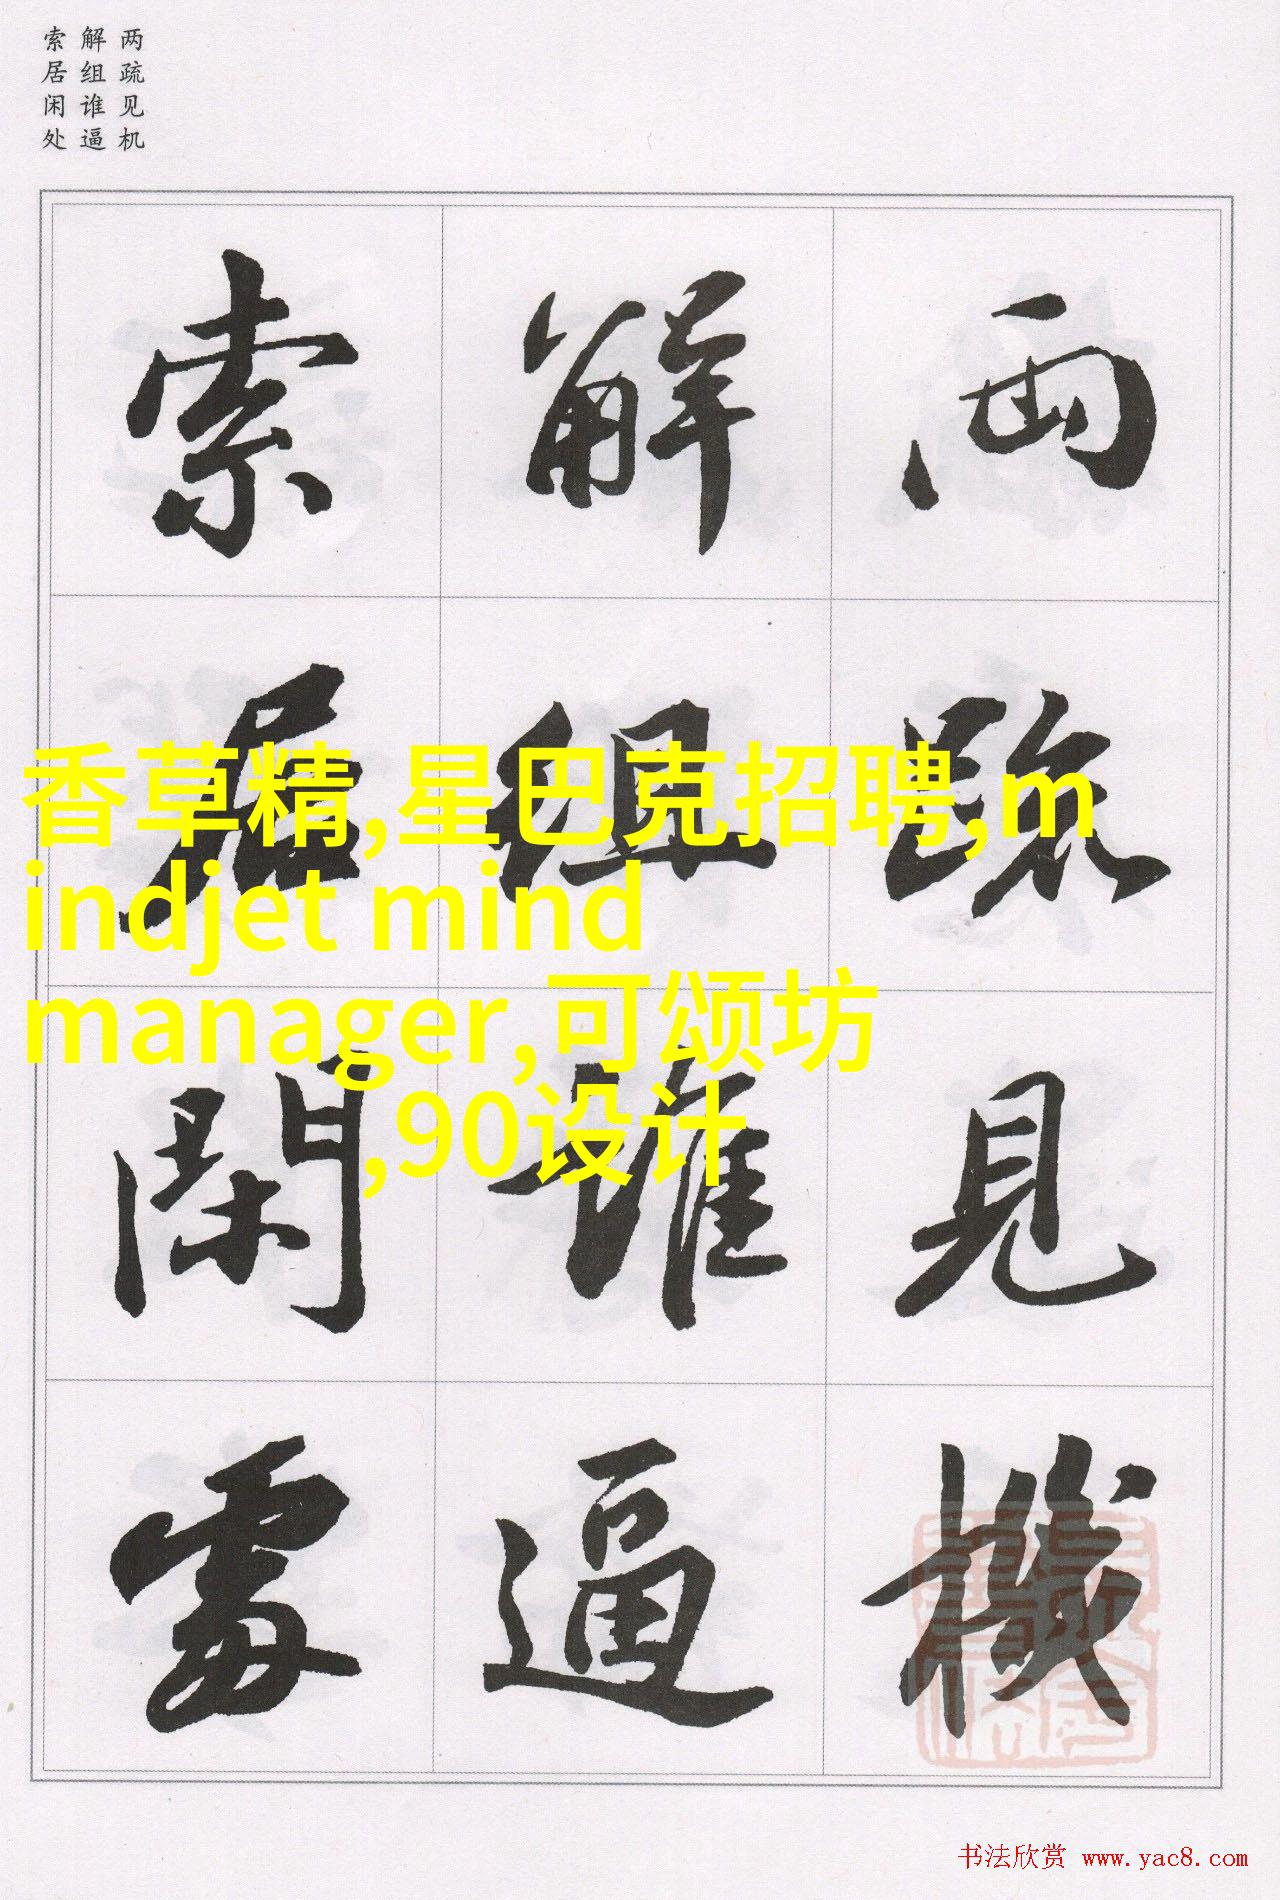 两疏见机
解组谁逼
索居闲处
兩疏見機
解組誰逼
索居閑處
香草精,星巴克招聘,m
indjet mind
manager,可颂坊
,90设计
书法欣赏 www.yac8.com